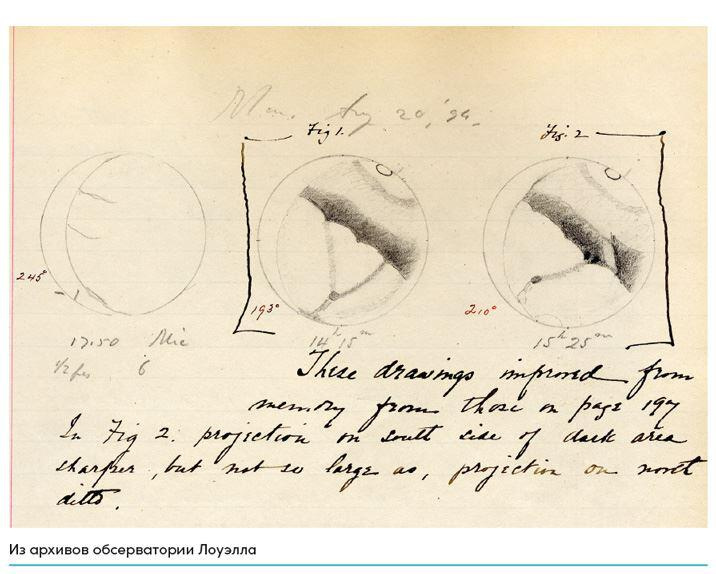 Mon. Aug 20, '94.
Fig 1. Fig. 2
245°
193°
210°
17.50 Mic
14h 15m
15h 25m
6
These drawings improved from
memory from those on page 197
In Fig 2. projection on south side of dark area
sharper, but not so large as, projection on north
ditto.
Из архивов обсерватории Лоуэлла